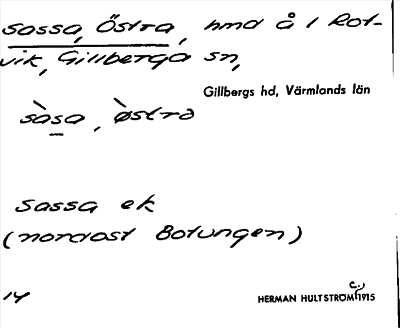 Sassa, Östra, hmd å i Rot-
vik, Gillberga sn,
Gillbergs hd, Värmlands län
sàsa, òstra
Sassa ek
(nordost Botungen)
14
HERMAN HULTSTRÖM c. 1915